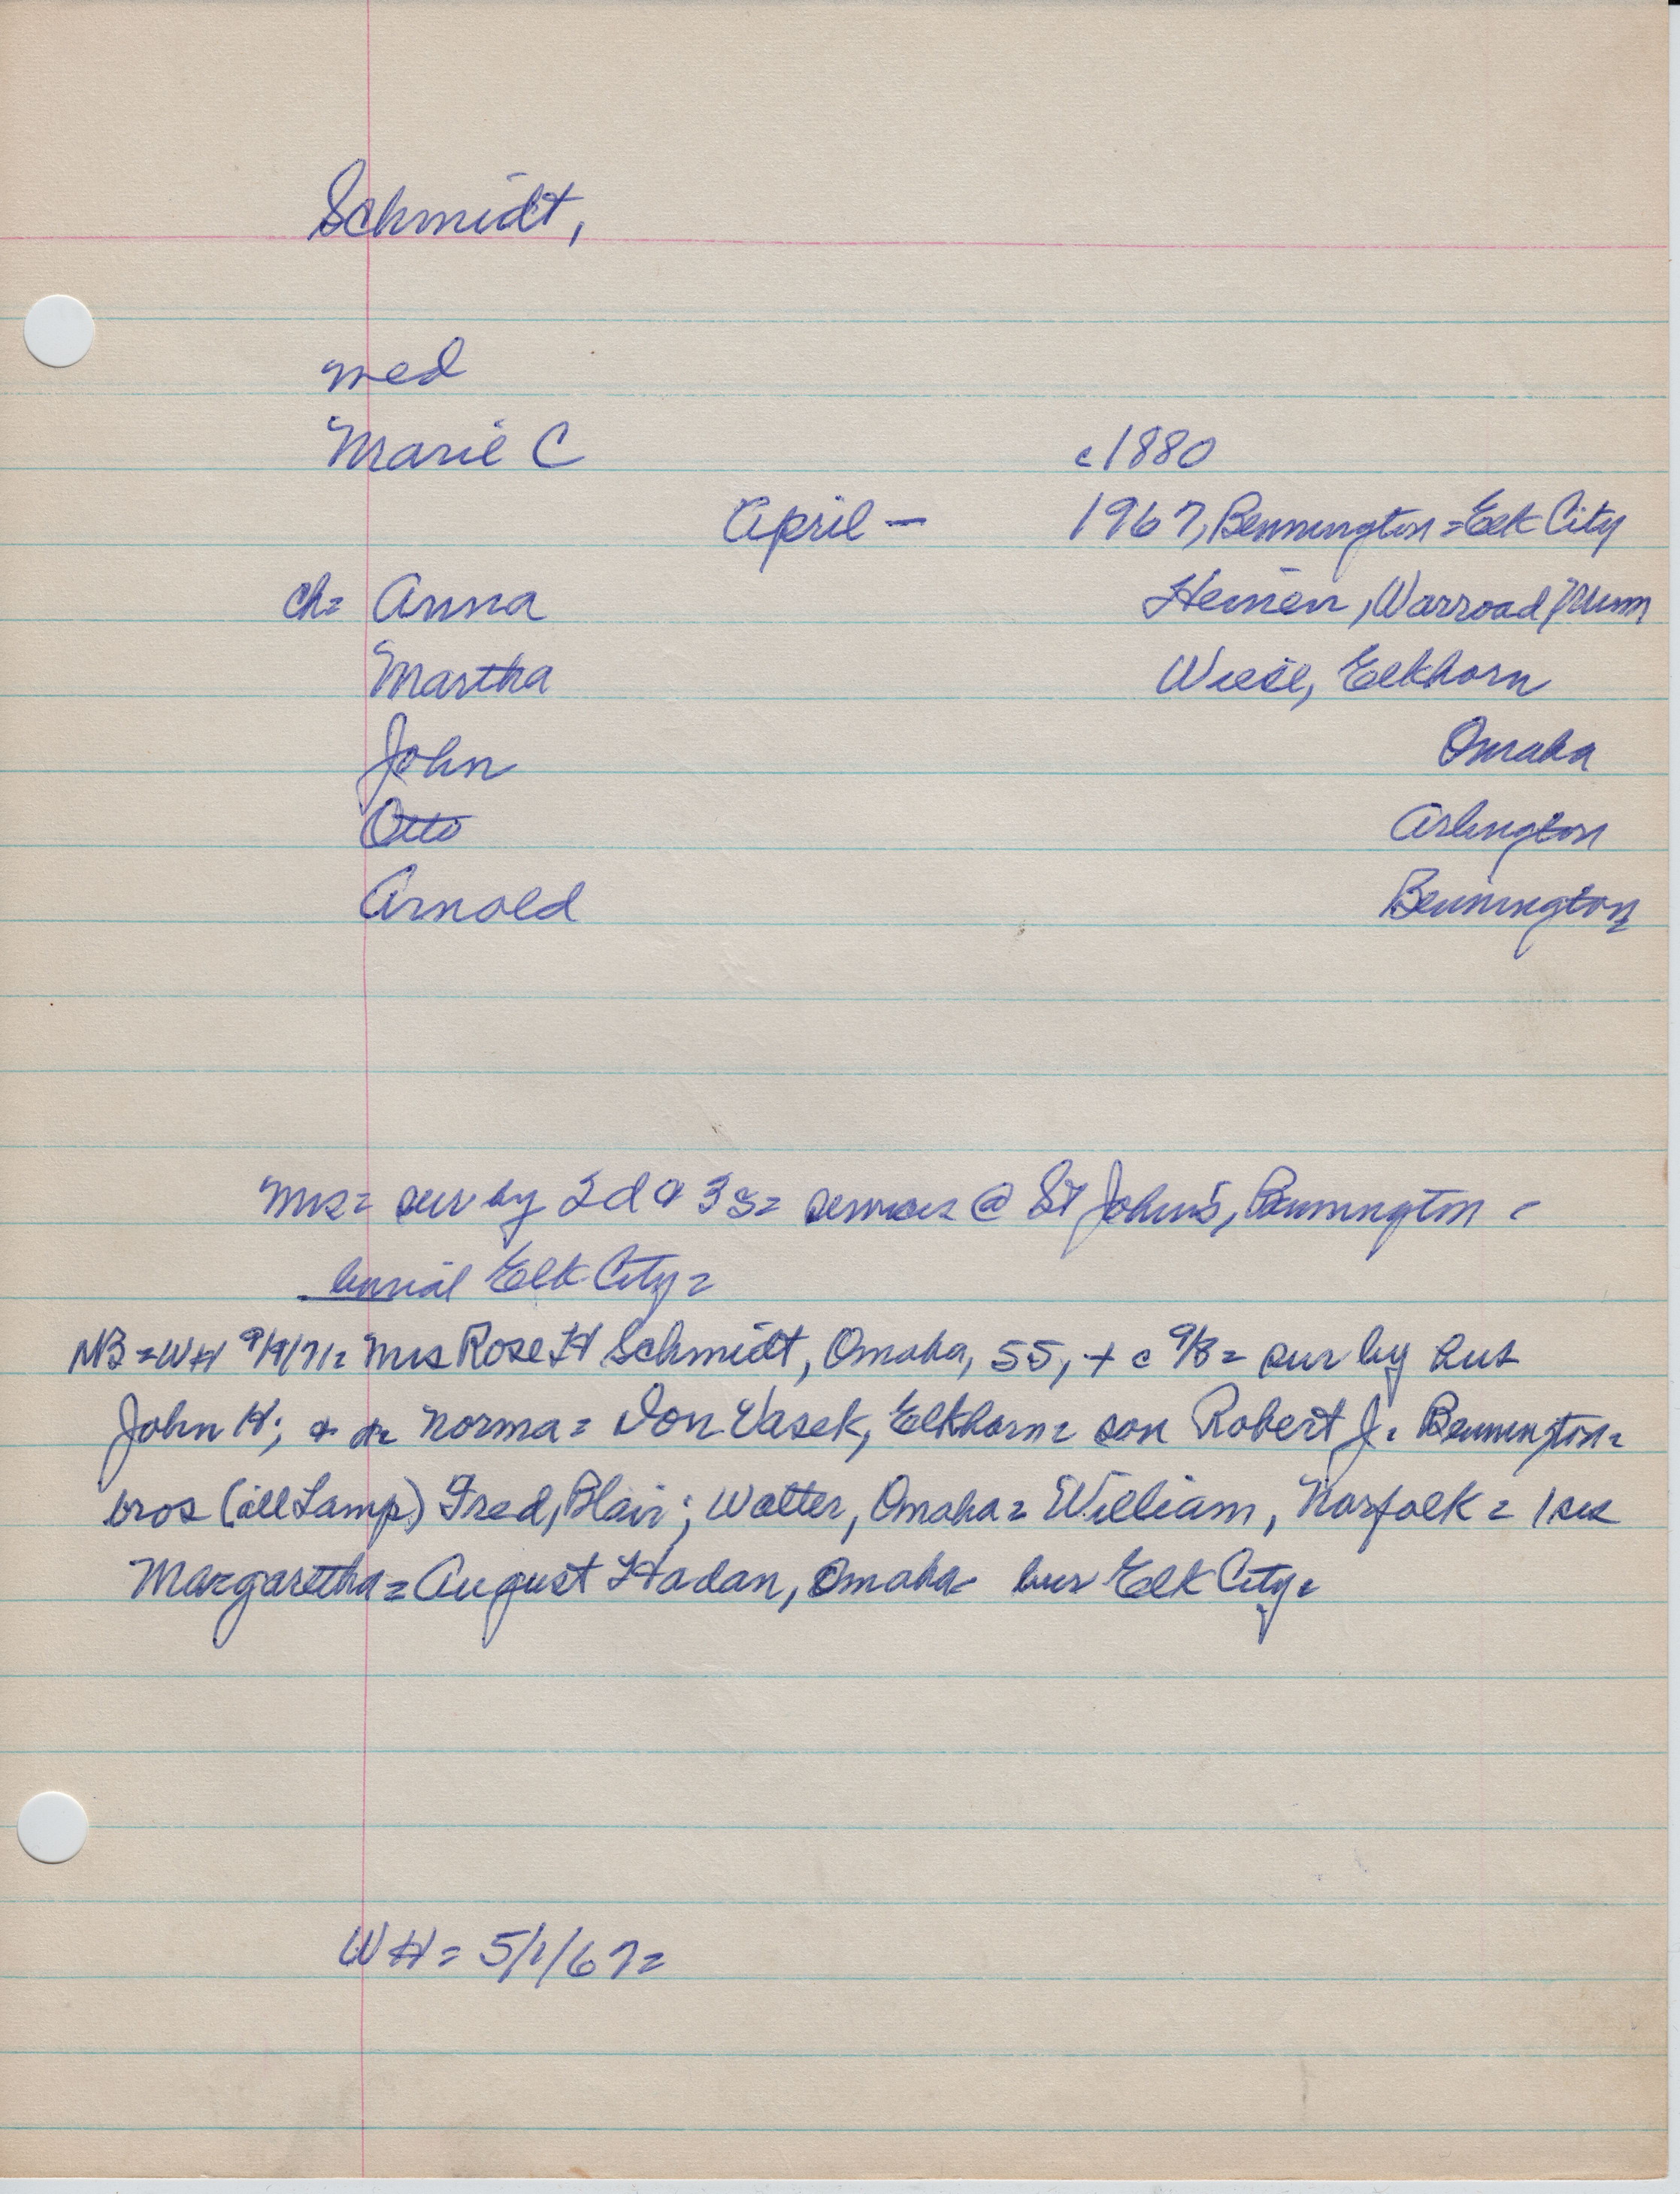 Schmidt,
med
Marie C c1880
April — 1967, Bennington = Elk City
ch= Anna Heinen, Warroad, Minn
Martha Wiese, Elkhorn
John Omaha
Otto Arlington
Arnold Bennington
Mrs= sur by 2 d & 3 s= services @ St John's, Bennington =
burial Elk City=
NB=WH 9/9/71= Mrs Rose H Schmidt, Omaha, 55, + c 9/8= sur by hus
John H; & Norma= Don Vasek, Elkhorn= son Robert J= Bennington=
bros (all Lamp) Fred, Blair; Walter, Omaha= William, Norfolk= 1 sis
Margaretha=August Hadan, Omaha- bur Elk City=
WH= 5/1/67=